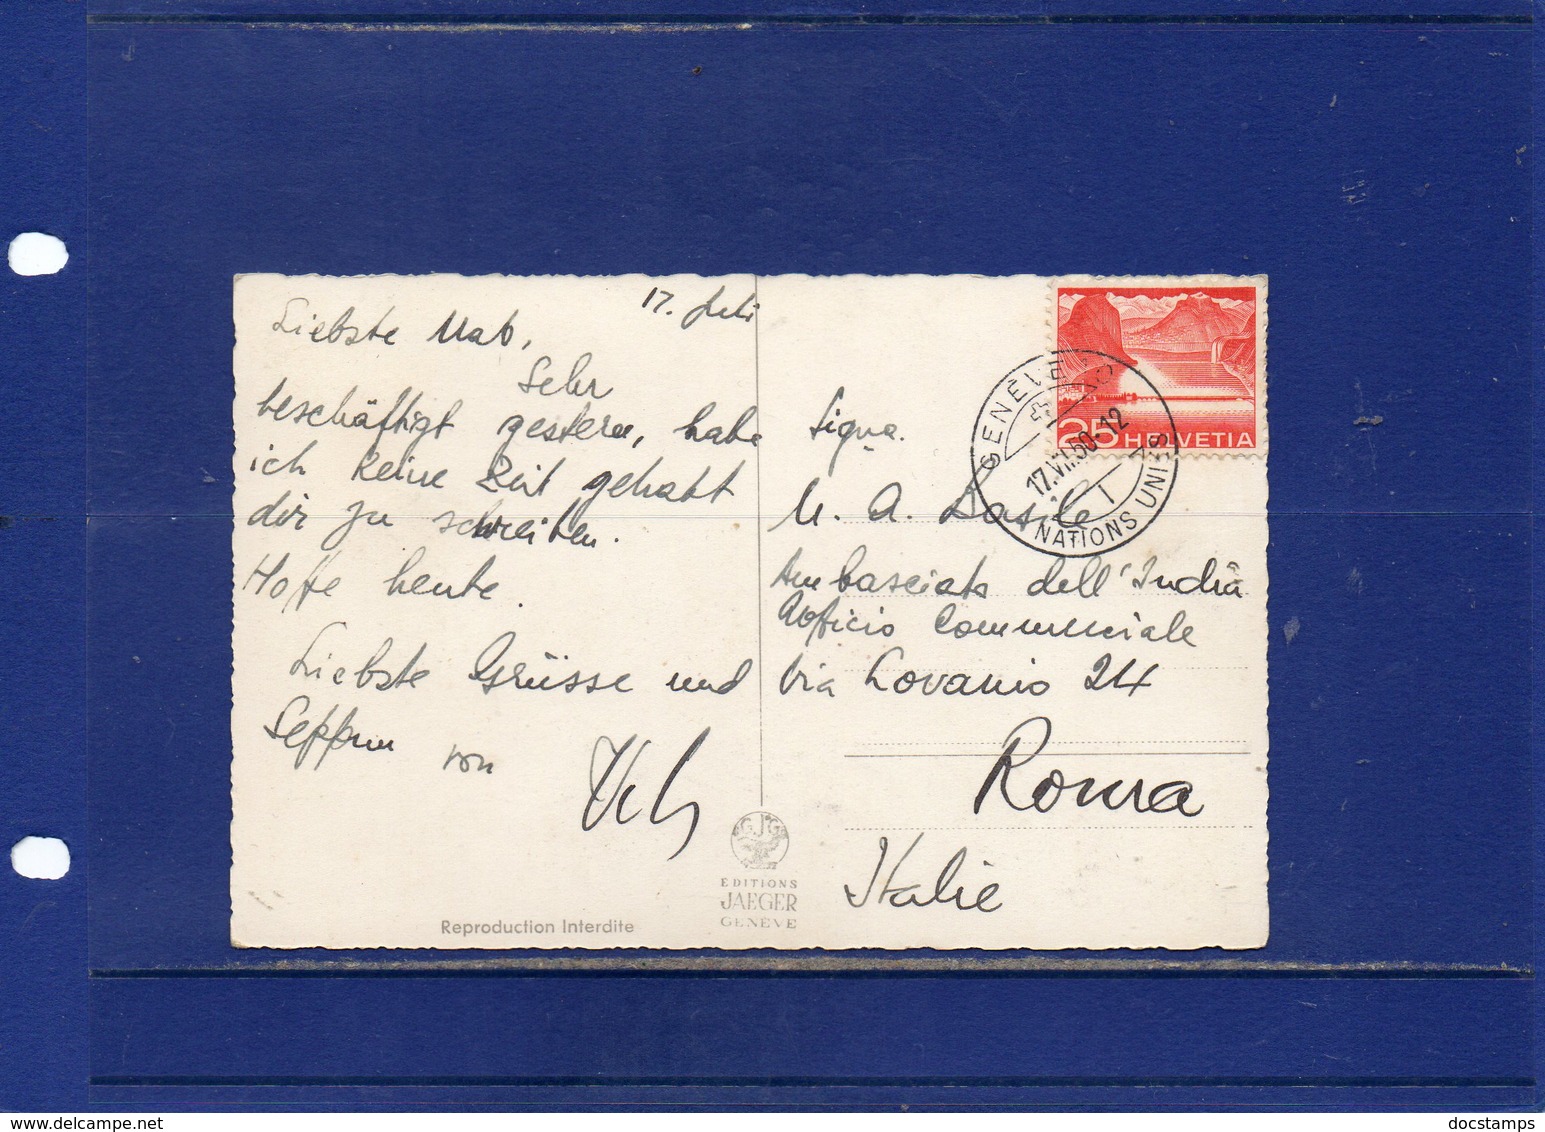 17. Juli
Liebste Mab,
Sehr
beschäftigt gestern, habe
ich keine Zeit gehabt
dir zu schreiben.
Hoffe heute.
Liebste Grüsse und
von
Signa.
M. A.
Ambasciata dell'India
Ufficio Commerciale
Via Lovanio 24
Roma
Italie
25 HELVETIA
GENÈVE 10
17.VII.50-12
NATIONS UNIES
GJG
EDITIONS
JAEGER
GENÈVE
Reproduction Interdite
docstamps